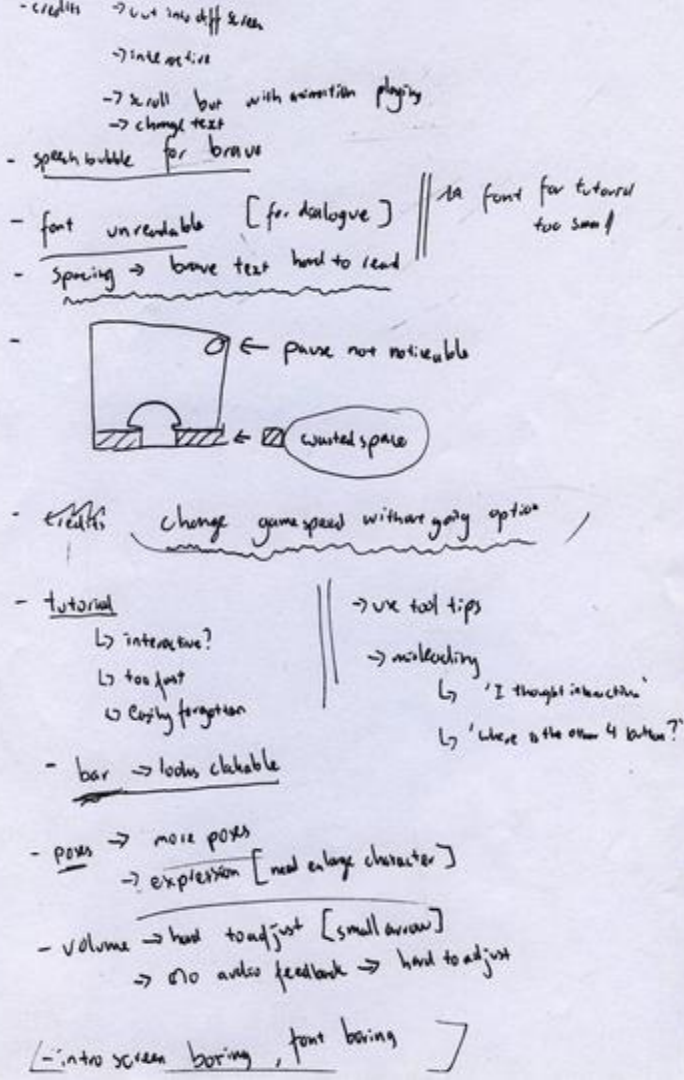 - credits → cut into diff screen
→ interactive
→ scroll but with animation playing
→ change text
- speech bubble for brave
- font unreadable [for dialogue]
font for tutorial too small
- spacing → brave text hard to read
- ← pause not noticeable
← wasted space
- credits change game speed without going option
- tutorial
↳ interactive?
↳ too fast
↳ Easily forgotten
→ use tool tips
→ misleading
↳ 'I thought interactive'
↳ 'where is the other 4 button?'
- bar → looks clickable
- poses → more poses
→ expression [need enlarge character]
- volume → hard to adjust [small arrow]
→ no audio feedback → hard to adjust
[- intro screen boring, font boring ]